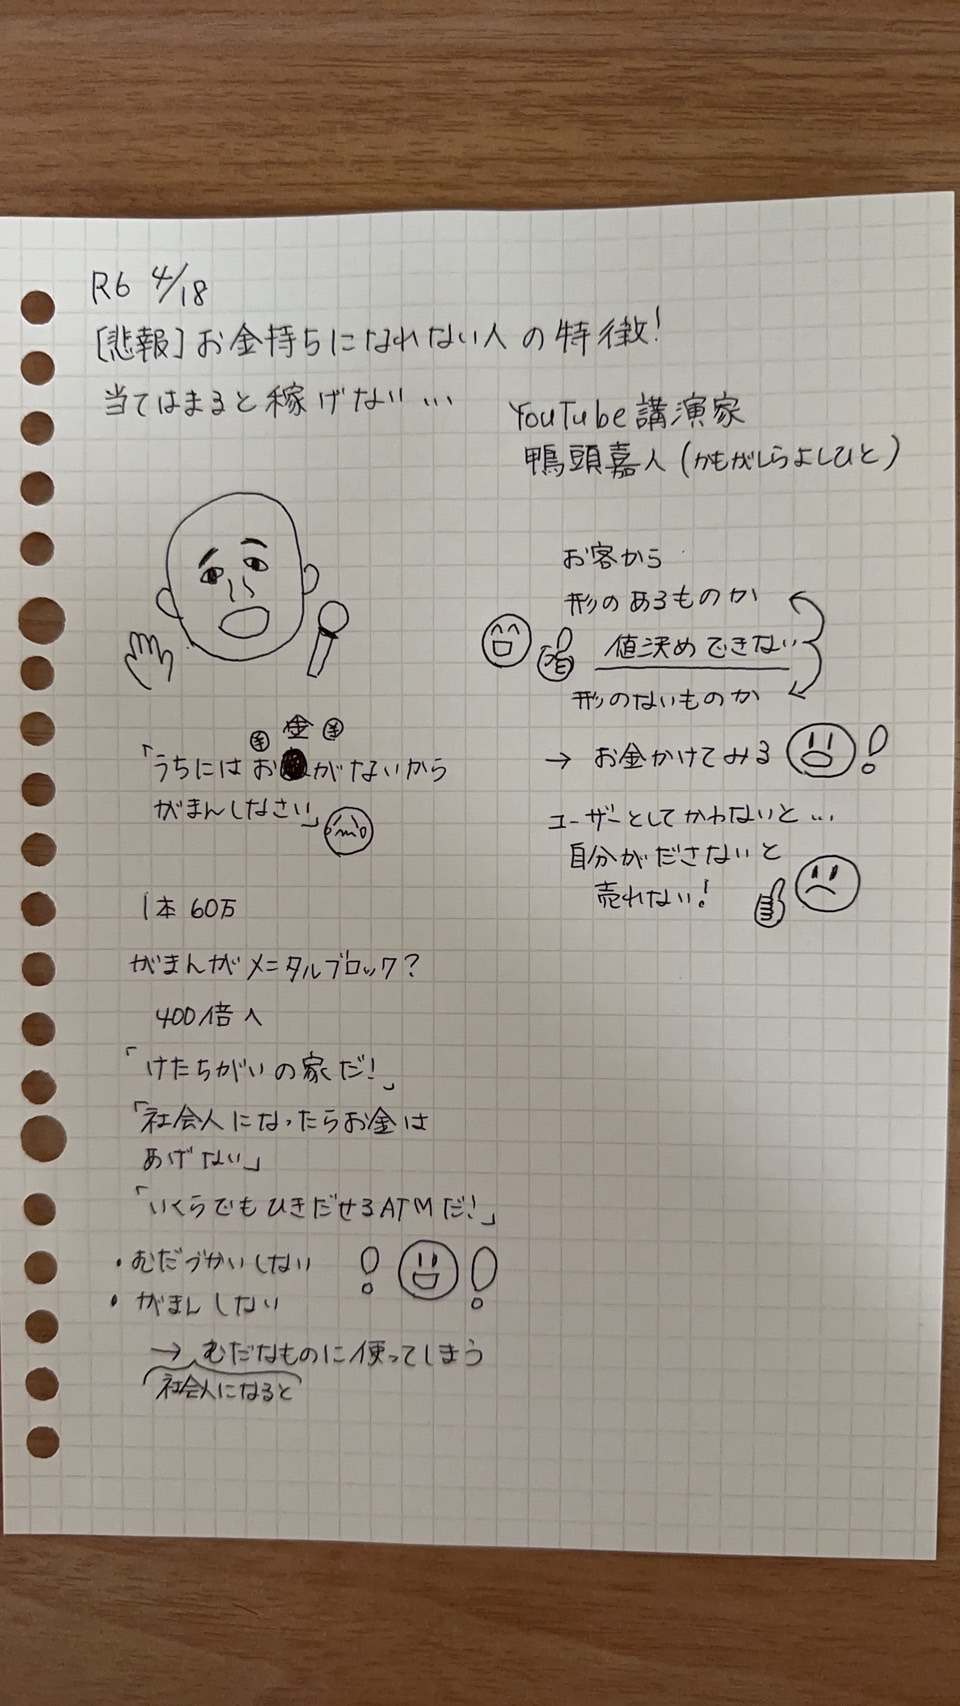 R6 4/18
[悲報]お金持ちになれない人の特徴!
当てはまると稼げない…
YouTube講演家
鴨頭嘉人(かもがしらよしひと)
¥ 金 ¥
「うちにはお がないから
がまんしなさい」
1本 60万
がまんがメンタルブロック?
400倍へ
「けたちがいの家だ!」
「社会人になったらお金は
あげない」
「いくらでもひきだせるATMだ!」
・むだづかいしない
・がまんしない
→ むだなものに使ってしまう
社会人になると
お客から
形のあるものか
値決めできない
形のないものか
→ お金かけてみる !
ユーザーとしてかわないと…
自分がださないと
売れない!